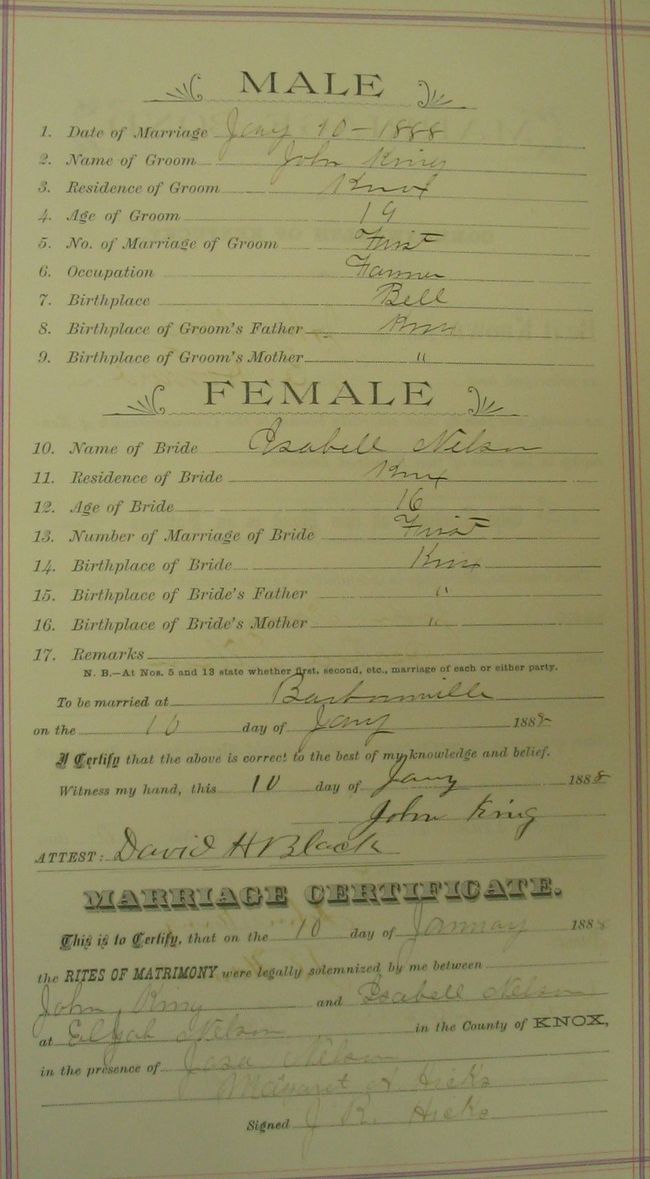 MALE
1. Date of Marriage Jany 10 - 1888
2. Name of Groom John King
3. Residence of Groom Knox
4. Age of Groom 19
5. No. of Marriage of Groom First
6. Occupation Farmer
7. Birthplace Bell
8. Birthplace of Groom's Father Knox
9. Birthplace of Groom's Mother "
FEMALE
10. Name of Bride Isabell Nelson
11. Residence of Bride Knox
12. Age of Bride 16
13. Number of Marriage of Bride First
14. Birthplace of Bride Knox
15. Birthplace of Bride's Father "
16. Birthplace of Bride's Mother "
17. Remarks
N. B.—At Nos. 5 and 13 state whether first, second, etc., marriage of each or either party.
To be married at Barbourville
on the 10 day of Jany 1888
I Certify that the above is correct to the best of my knowledge and belief.
Witness my hand, this 10 day of Jany 1888
John King
ATTEST: David H Black
MARRIAGE CERTIFICATE.
This is to Certify, that on the 10 day of January 1888
the RITES OF MATRIMONY were legally solemnized by me between
John King and Isabell Nelson
at Elijah Nelson in the County of KNOX,
in the presence of Nelson
Hicks
Signed J R. Hicks